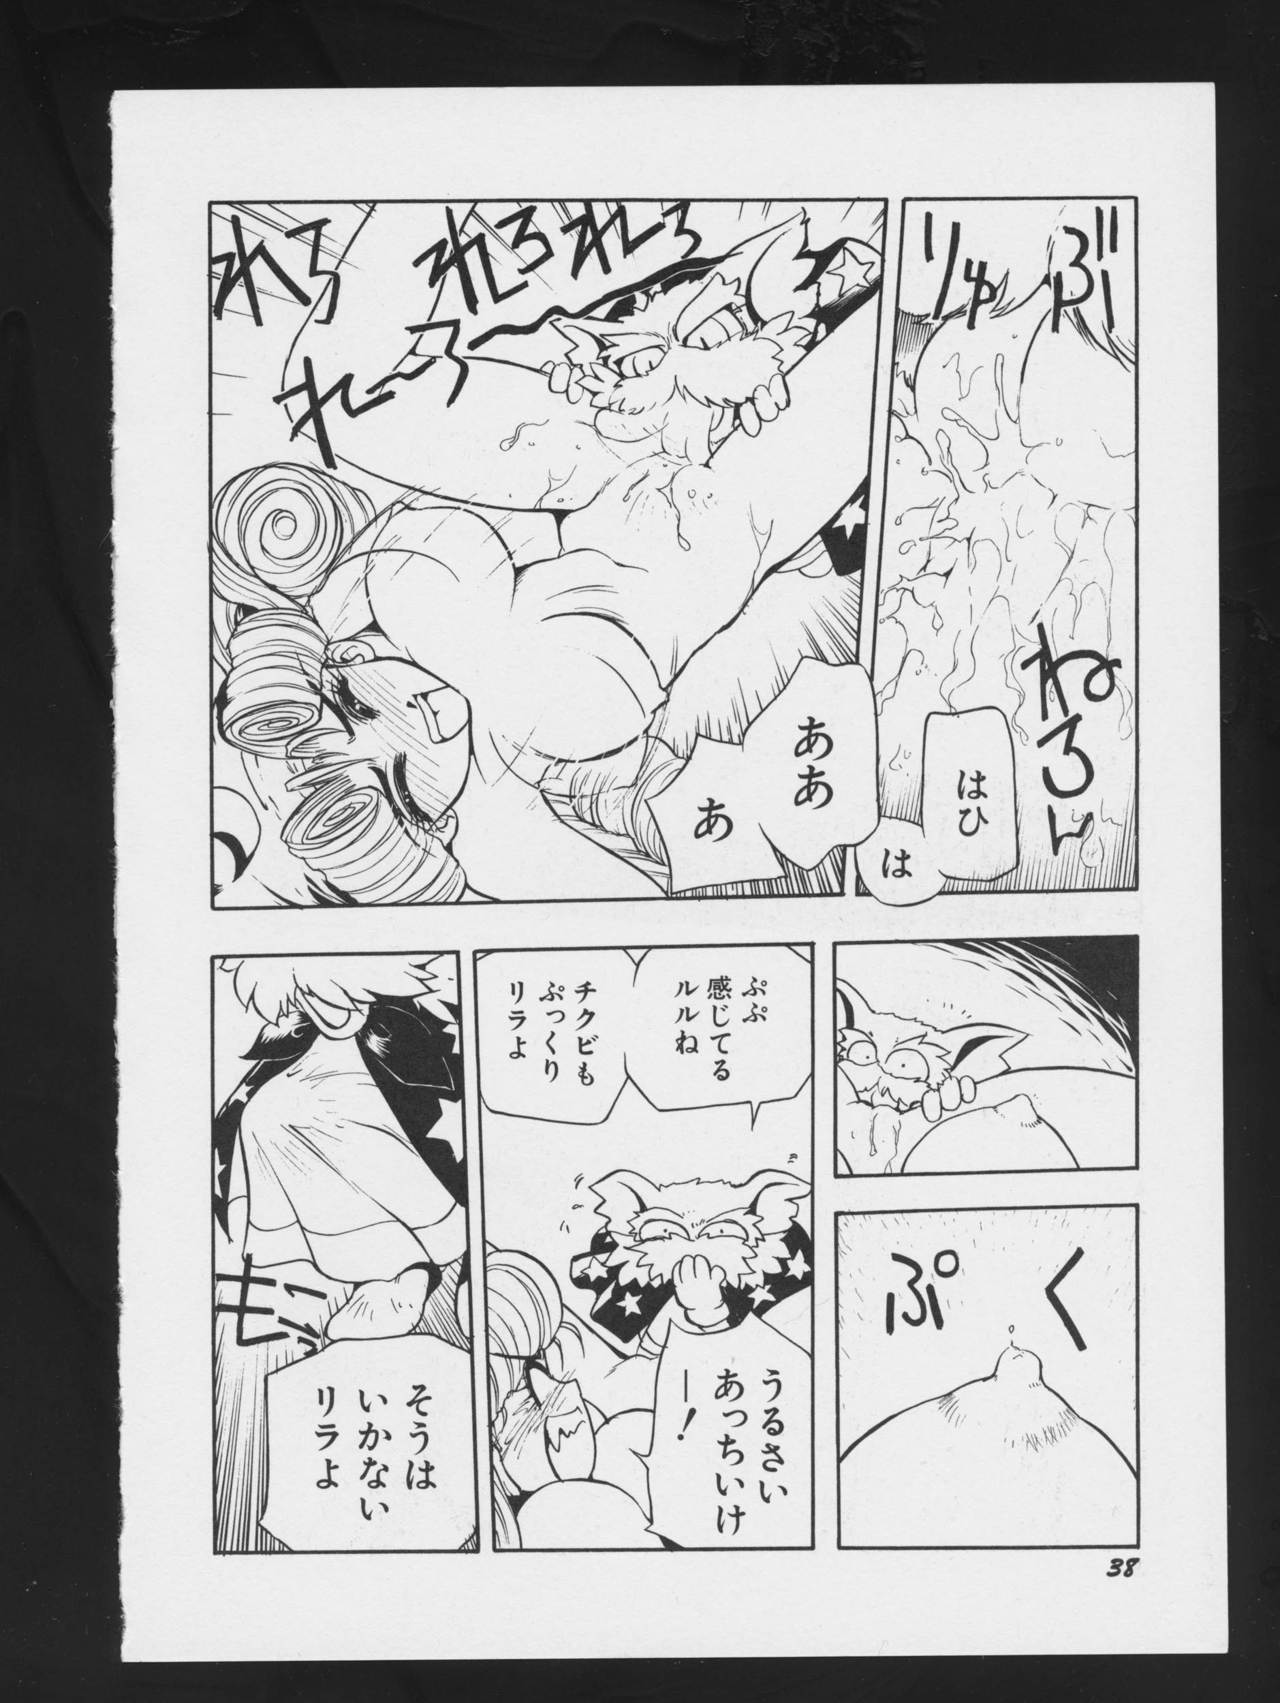 ぶ
りゅ
ねろん
はひ
は
れろれろ
れろ
れ〜ろ
ああ
あ
ぷ
く
ぷぷ
感じてる
ルルね
チクビも
ぷっくり
リラよ
うるさい
あっちいけ
ー！
そうは
いかない
リラよ
モゾ
38